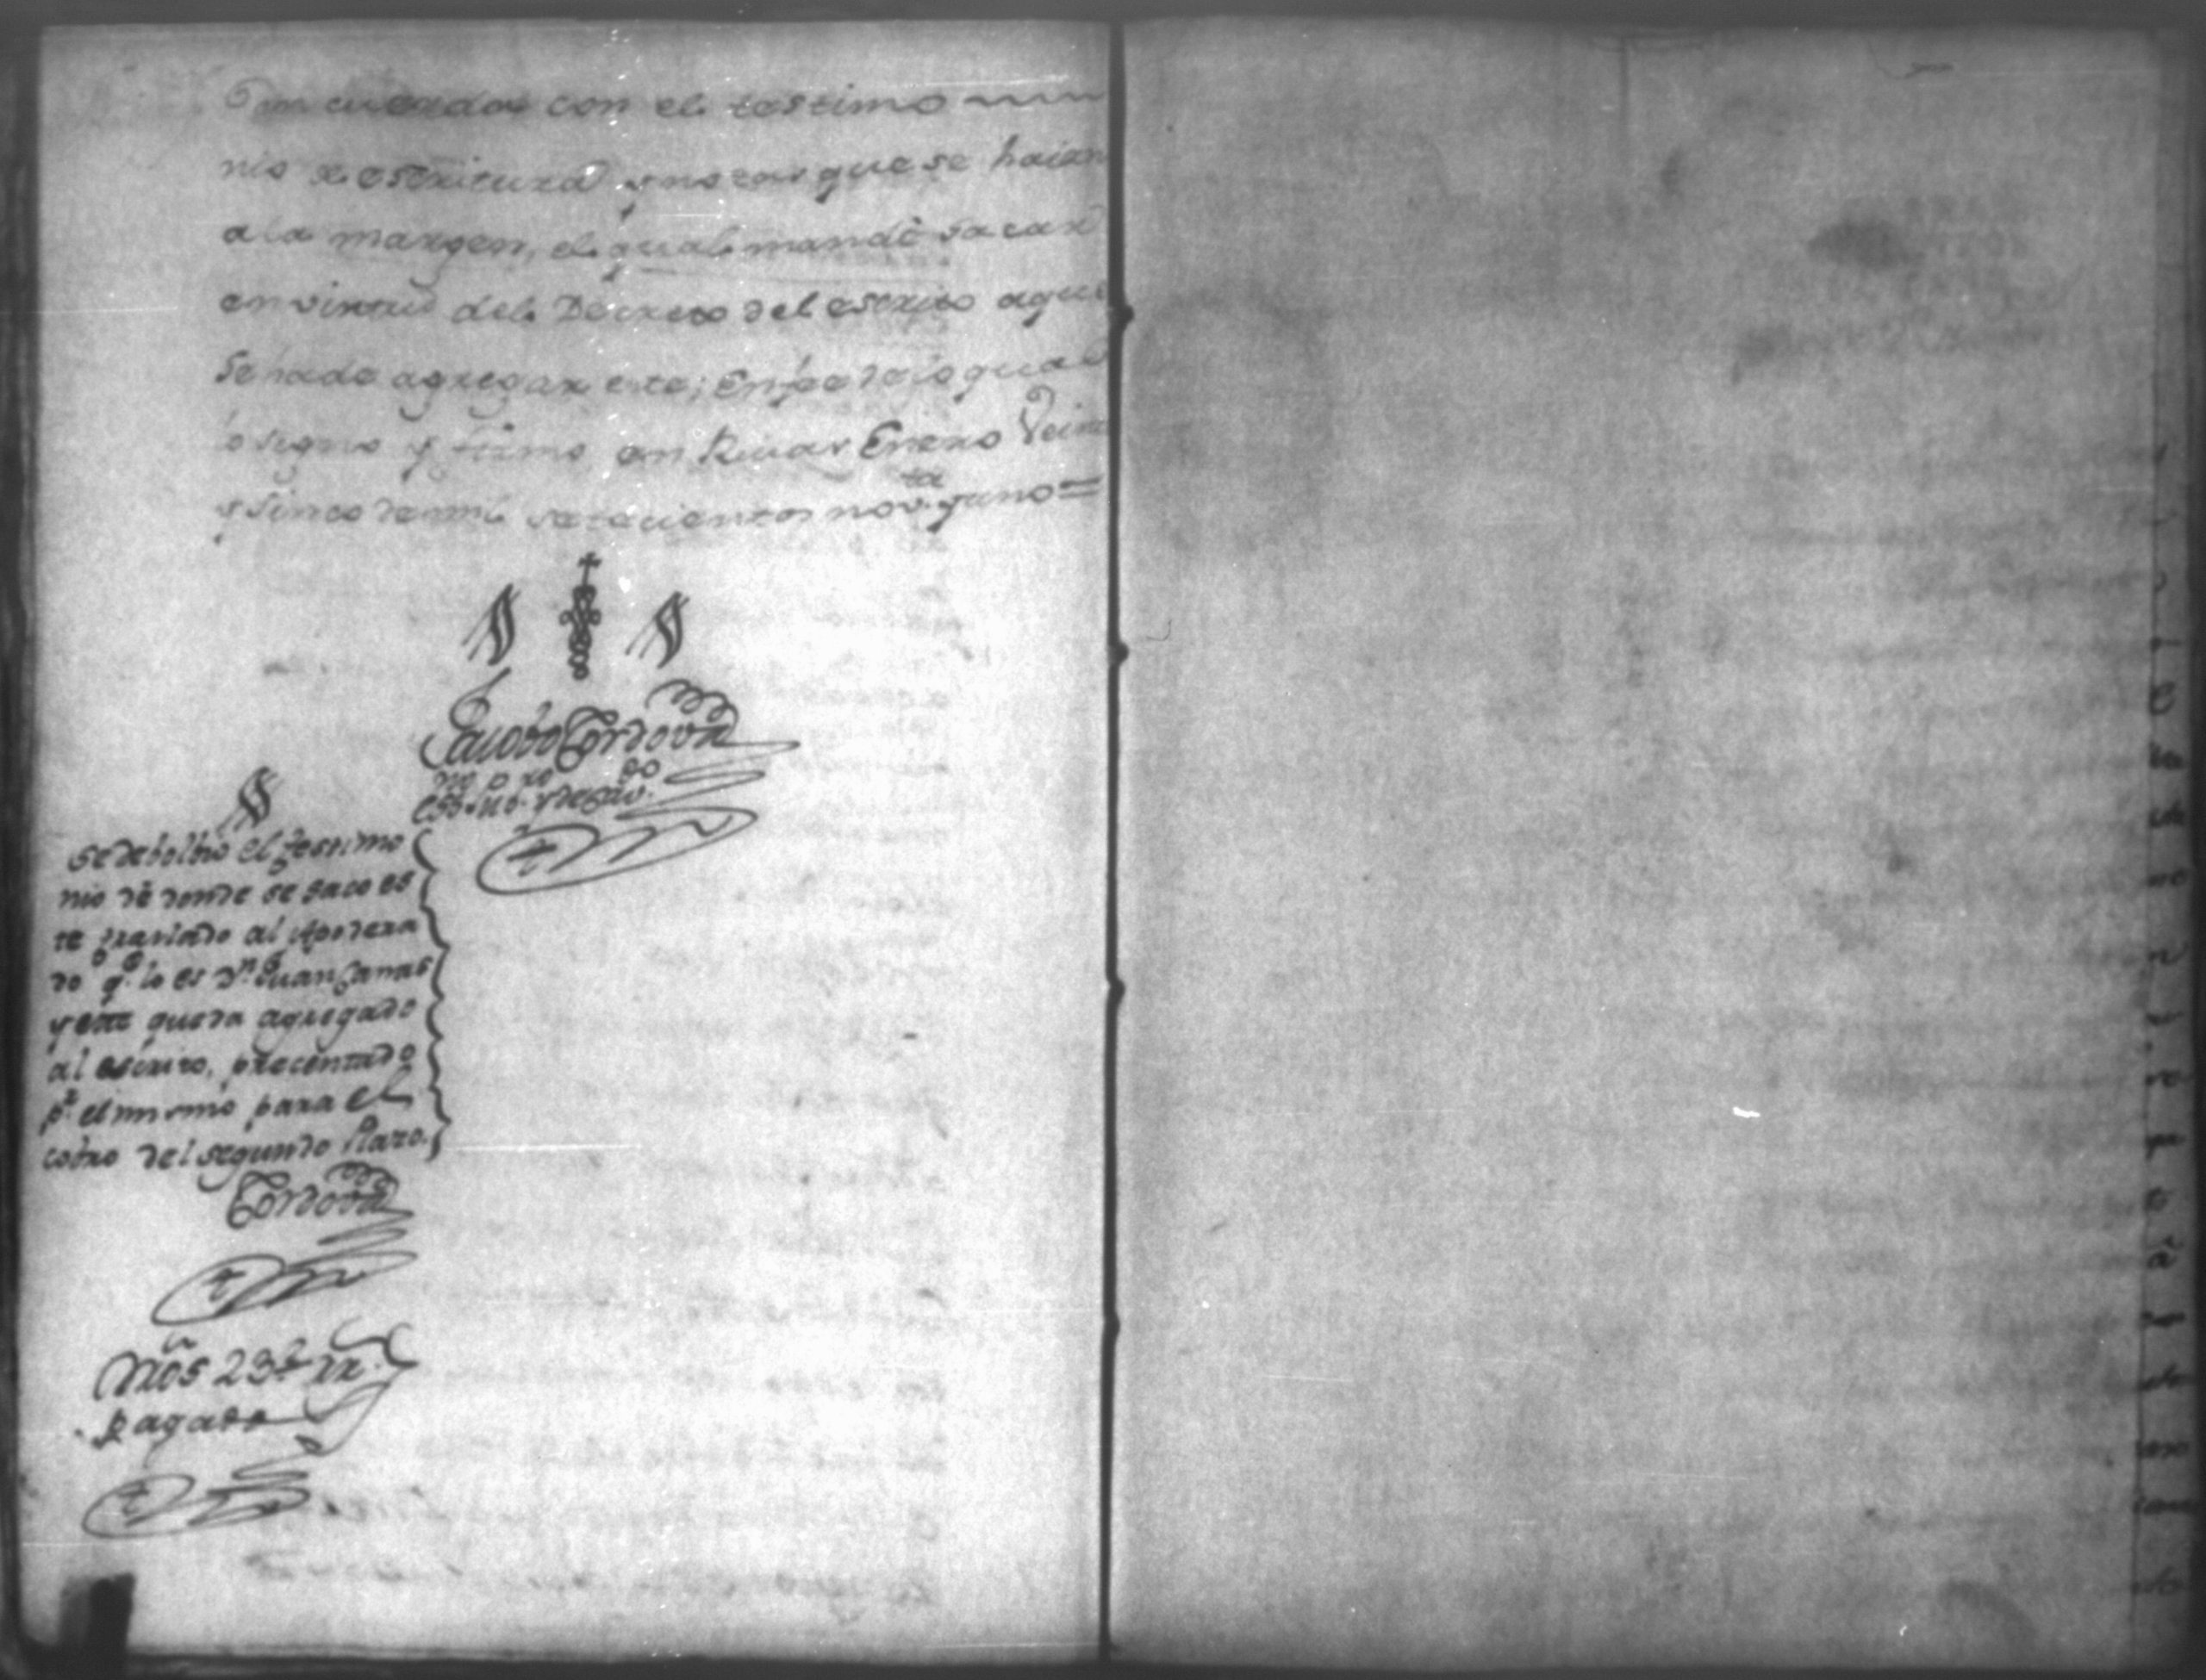 con el testimo
nio de escritura y notas que se haian
a la margen, el qual mandè sacar
en virtud del Decreto del escrito aque
se hade agregar este; En fee de lo qual
lo signo y firmo en Rivas Enero Veint
y sinco de mil setecientos nov.ta y uno =
Jacobo Cordova
ess.no pu.co y de Cav.do
Se debolbio el testimo
nio de donde se saco es
te traslado al Apodera
do q.e lo es D.n Juan
y este queda agregado
al escrito, precentado
p.r el mismo para el
cobro del segundo Plazo.
Cordova
23
Pagado